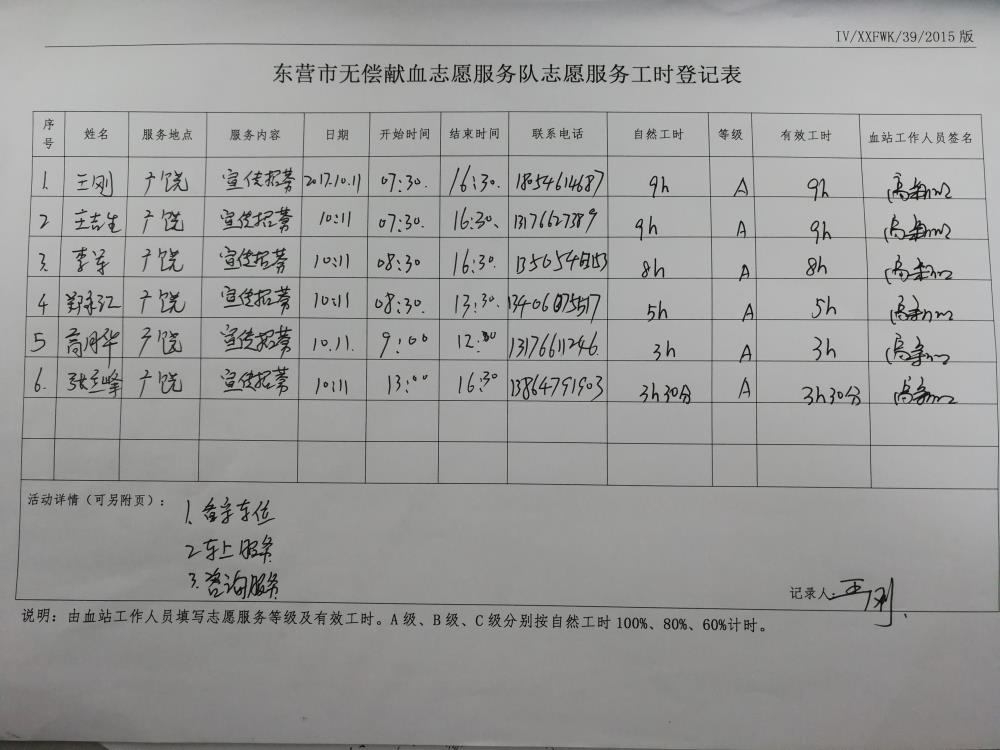 IV/XXFWK/39/2015 版
东营市无偿献血志愿服务队志愿服务工时登记表
序号 姓名 服务地点 服务内容 日期 开始时间 结束时间 联系电话 自然工时 等级 有效工时 血站工作人员签名
1. 王刚 广饶 宣传招募 2017.10.11 07:30. 16:30. 18054614687 9h A 9h
2 王吉生 广饶 宣传招募 10:11 07:30. 16:30. 13176627389 9h A 9h
3. 李军 广饶 宣传招募 10:11 08:30 16:30. 8h A 8h
4 广饶 宣传招募 10:11 08:30. 13:30. 5h A 5h
5 高月华 广饶 宣传招募 10.11. 9:00 12:00 13176611246. 3h A 3h
6. 张立峰 广饶 宣传招募 10:11 13:00 16:30 13864791903 3h30分 A 3h30分
活动详情（可另附页）：
1. 车位
2. 车上服务
3. 咨询服务
记录人: 王刚.
说明：由血站工作人员填写志愿服务等级及有效工时。A级、B级、C级分别按自然工时100%、80%、60%计时。